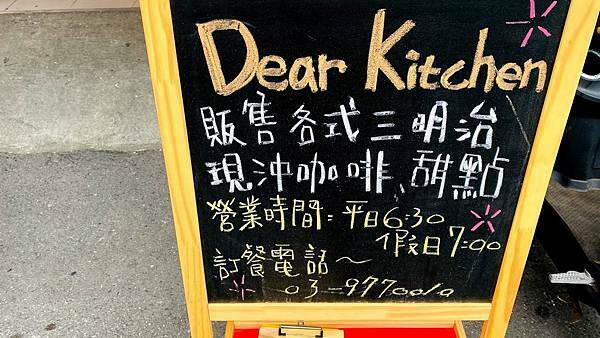 Dear Kitchen
販售各式三明治
現沖咖啡、甜點
營業時間:平日6:30
假日7:00
訂餐電話~
03-9770010